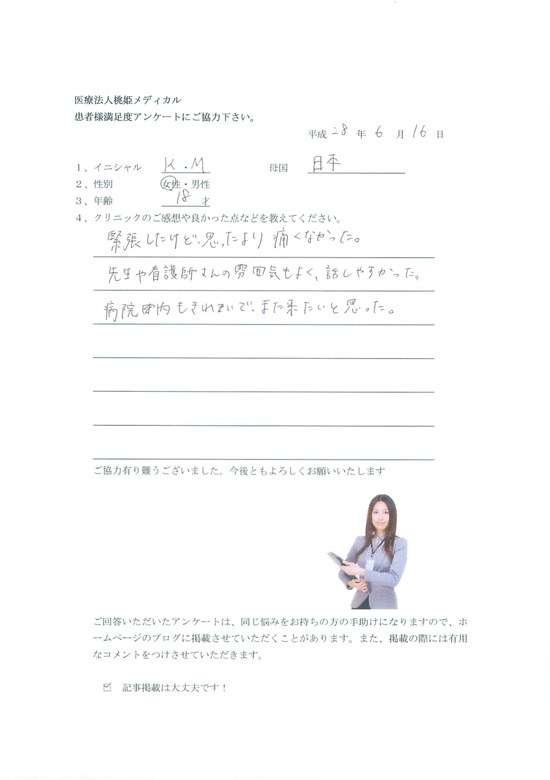 医療法人桃姫メディカル
患者様満足度アンケートにご協力下さい。
平成 28 年 6 月 16 日
1、イニシャル K.M 母国 日本
2、性別 女性・男性
3、年齢 18 才
4、クリニックのご感想や良かった点などを教えてください。
緊張したけど、思ったより痛くなかった。
先生や看護師さんの雰囲気もよく、話しやすかった。
病院内もきれいで、また来たいと思った。
ご協力有り難うございました。今後ともよろしくお願いいたします
ご回答いただいたアンケートは、同じ悩みをお持ちの方の手助けになりますので、ホ
ームページのブログに掲載させていただくことがあります。また、掲載の際には有用
なコメントをつけさせていただきます。
☑ 記事掲載は大丈夫です！